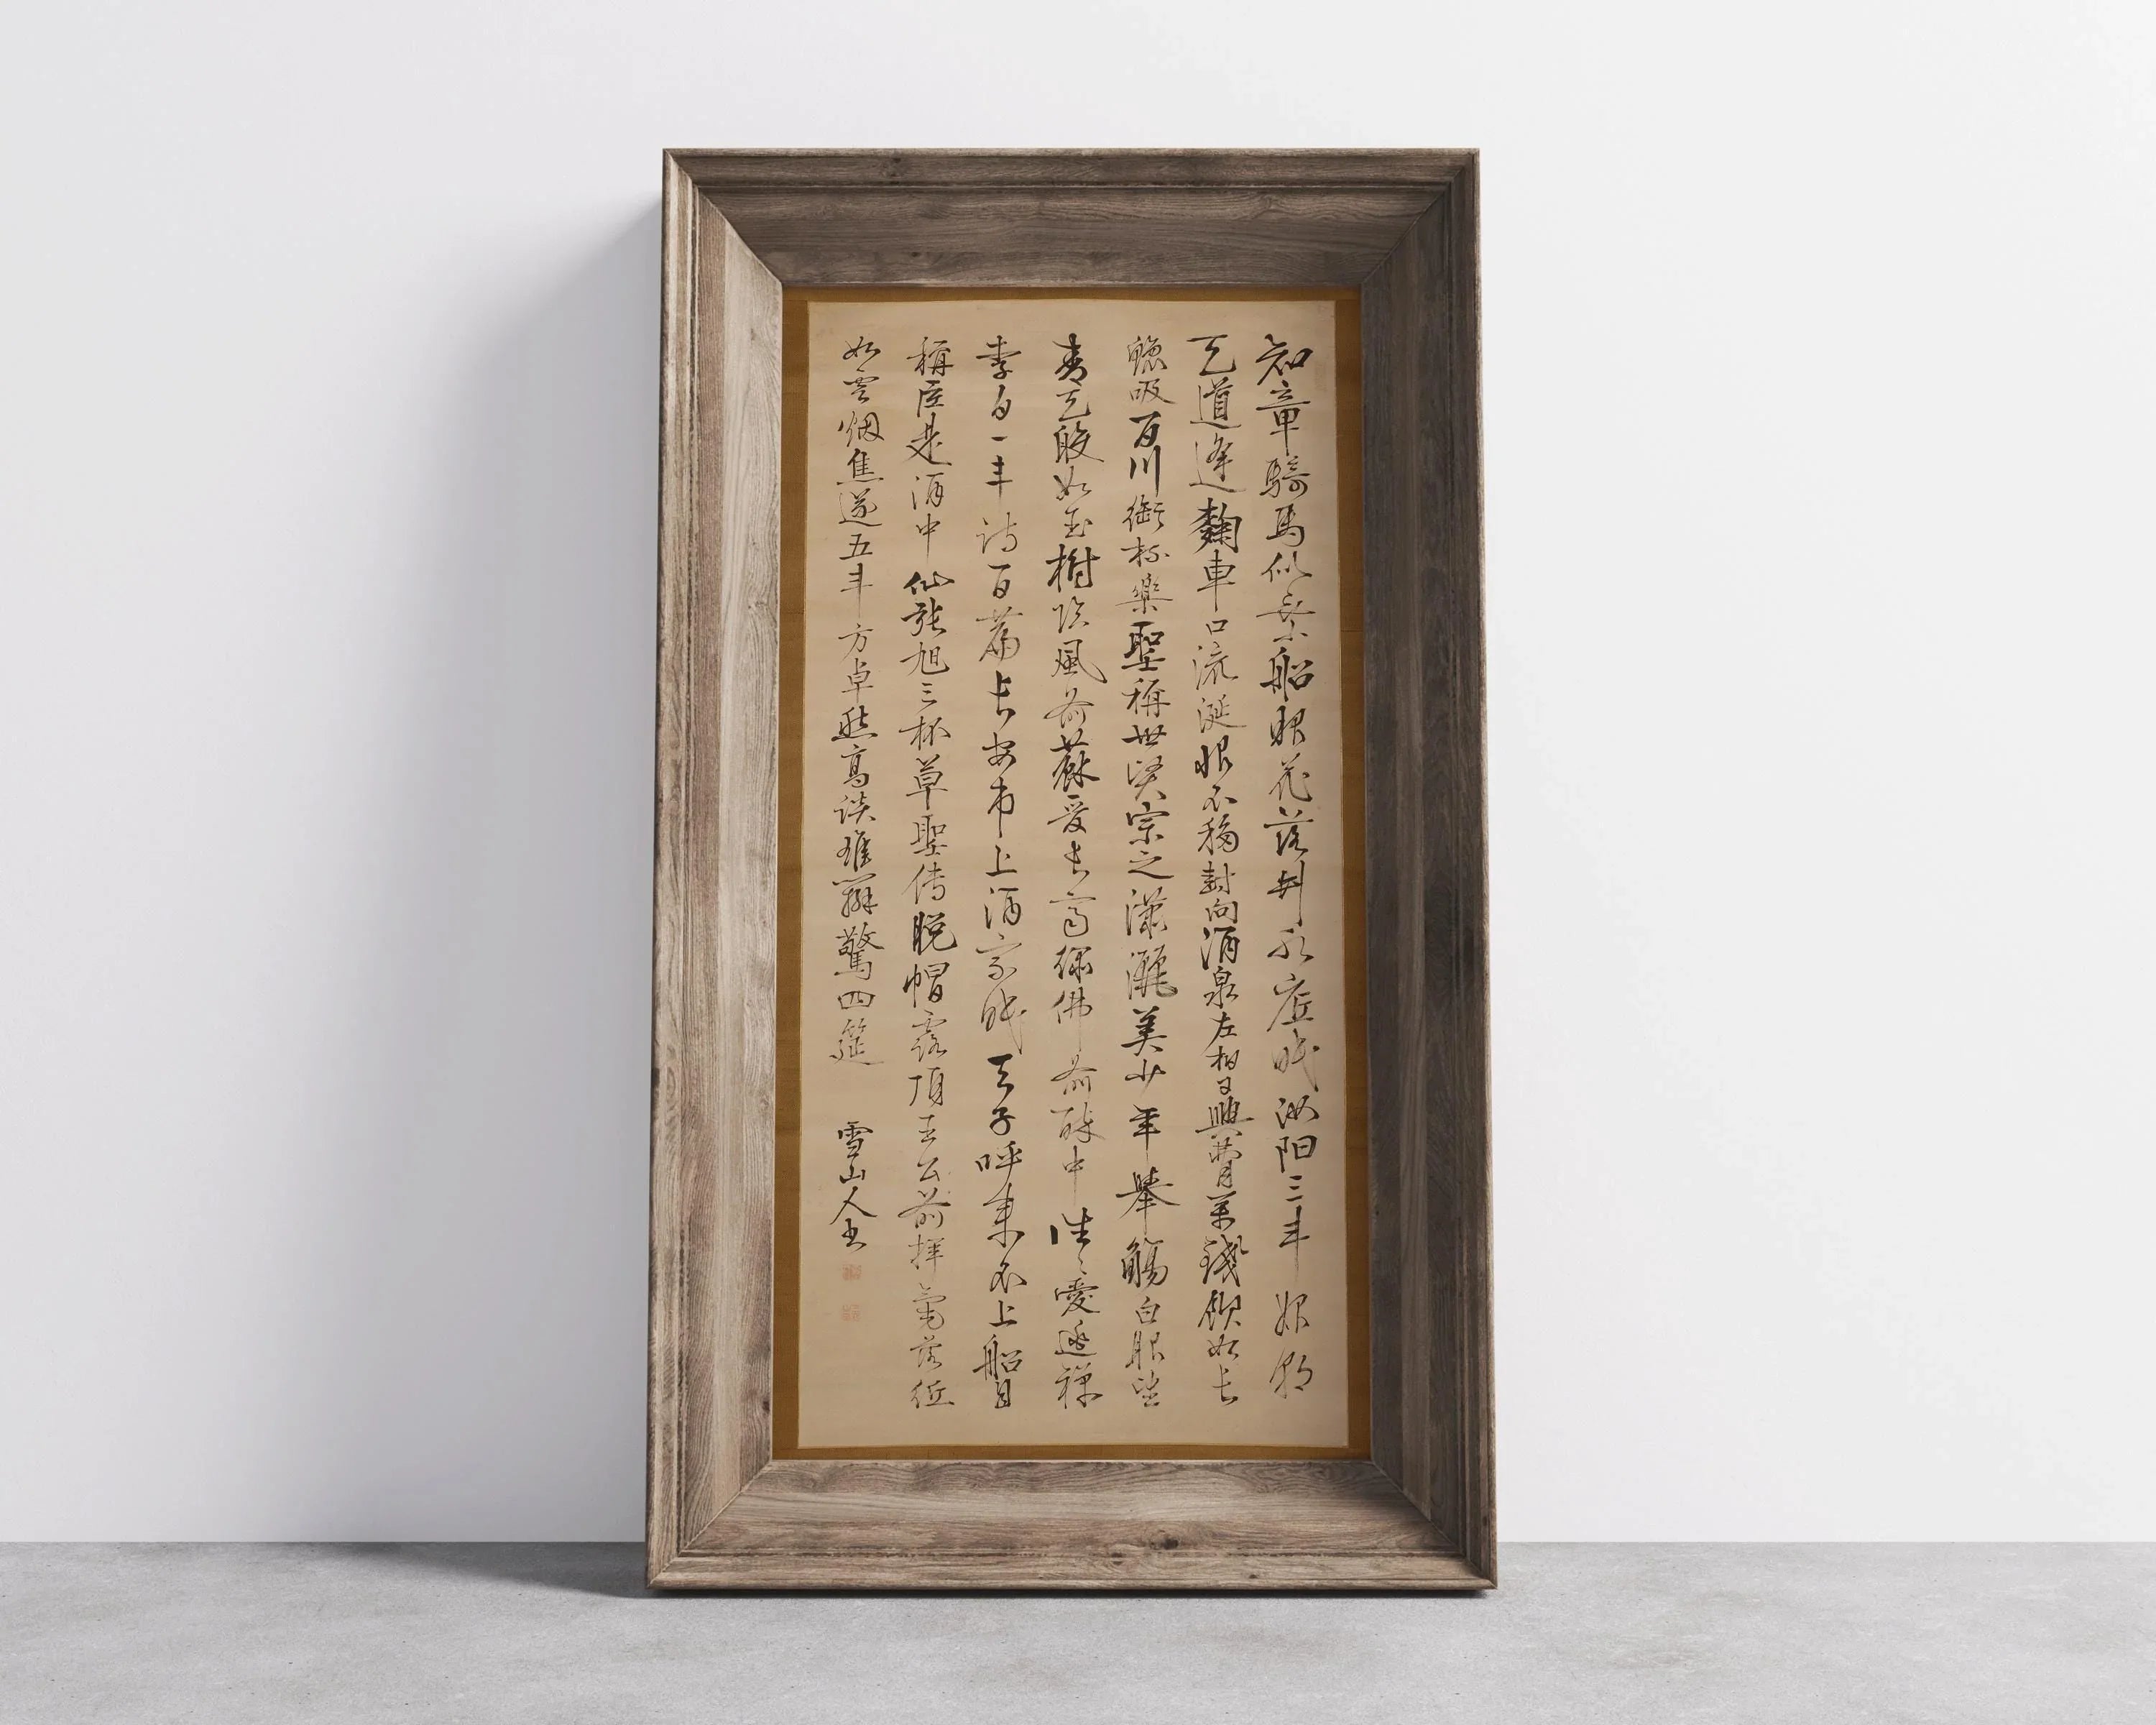 知章騎馬似乗船眼花落井水底眠汝阳三斗始朝
天道逢麴車口流涎恨不移封向酒泉左相日興費萬錢飲如長
鯨吸百川銜杯樂聖稱世賢宗之瀟灑美少年舉觴白眼望
青天皎如玉樹臨風前蘇晉長齋繡佛前醉中往々愛逃禪
李白一斗詩百篇長安市上酒家眠天子呼来不上船自
稱臣是酒中仙張旭三杯草聖傳脱帽露頂王公前揮毫落紙
如雲烟焦遂五斗方卓然高談雄辯驚四筵
雪山人書